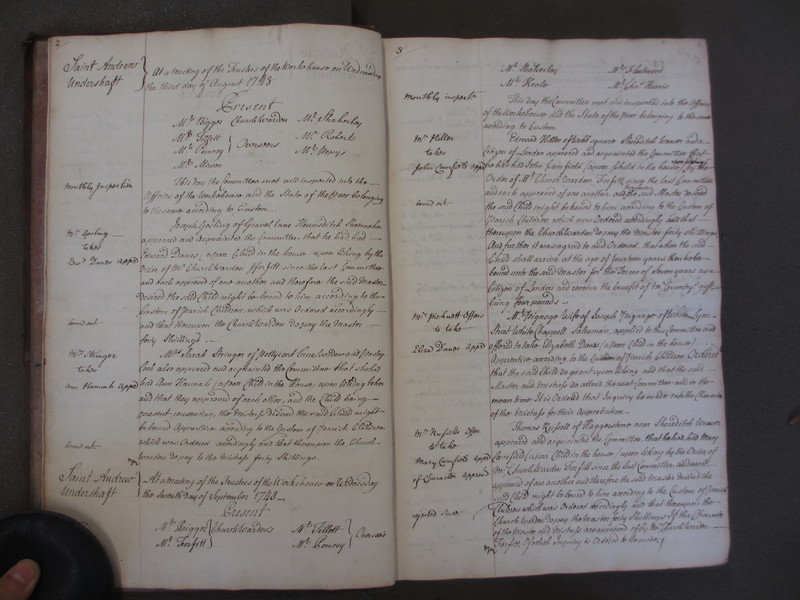 2
Saint Andrew
Undershaft
At a meeting of the Trustees of the Workhouse on Wednesday
the third day of August 1748
Present
Mr. Biggs Church Warden Mr. Shakerley
Mr. Tillott Mr. Roberts
Mr. Pomroy Overseers
Mr. Mason
Monthly Inspection
This day the Committee met and inspected into the
Officers of the Workhouse and the State of the Poor belonging
to the same according to Custom.
Joseph Gosling of Gravel lane Houndsditch Shoemaker
Mr. Gosling
takes
appeared and acquainted the Committee that he had had
Edwd. Danes Apprd
Edward Danes (a poor Child in the house upon liking by the
Order of Mr. Church Warden Forfitt since the last Committee
and each approved of one another and therefore the said Master
desired the said Child might be bound to him according to the
Custom of Parish Children, which was Ordered accordingly
bound out
and that thereupon the Church Warden do pay the Master
forty Shillings
Mr. Stringer
takes
Mrs. Sarah Stringer of Pettycoat lane Widow and
also appeared and acquainted the Committee that she had
Ann Hannah Apprd
had Ann Hannah (a poor Child in the House) upon liking
and that they approved of each other, and the Child being
present consenting, the Mistress desired the said Child might
be bound Apprentice according to the Custom of Parish Children
bound out
which was Ordered accordingly and that thereupon the Church
Warden do pay to the Mistress forty Shillings.
Saint Andrew
Undershaft
At a Meeting of the Trustees of the Workhouse on Wednesday
the seventh day of September 1748
Present
Mr. Biggs Church Wardens Mr. Tillott Overseers
Mr. Forfitt Mr. Pomroy
3
Mr. Shakerley Mr. Fleetwood
Mr. Keate Mr. Chas. Harris
Monthly inspectn.
This day the Committee met and inspected into the Officers
of the Workhouse and the State of the poor belonging to the same
according to Custom
Mr. Hiller
takes
Edward Hiller of Webb square Shoreditch Weaver and a
Citizen of London appeared and acquainted the Committee that
John Comfort Apprd
he had had John Comfort (a poor Child in the house) by the
Order of Mr. Church Warden Forfitt since the last Committee
and each approved of one another and the said Master desired
bound out
the said Child might be bound to him according to the Custom of
Parish Children which was Ordered accordingly and that
thereupon the Church Warden do pay the Master forty shillings
And further it was agreed to and Ordered, that when the said
Child shall arrive at the age of fourteen years then to be
bound unto the said Master for the Term of seven years as a
Citizen of London and receive the benefit of
being four pounds
offers
to take
Eliza Danes Apprd
Street White Chappell Salesman, applied to this Committee and
offered to take Elizabeth Danes (a poor Child in the house)
Apprentice according to the Custom of Parish Children Ordered
that the said Child do go out upon liking and that the said
Master and Mistress do attend the next Committee and in the
mean time It is Ordered that Inquiry be made into the Character
of the Mistress for their Approbation
Mr. Russells Offer
to take
Thomas Russell of Haggerstone near Shoreditch Weaver
appeared and acquainted the Committee, that he had had Mary
Mary Comfort Apprd
if Character Approved
Comfort (a poor Child in the house) upon liking by the Order of
Mr. Church Warden Forfitt since the last Committee and each
approved of one another and therefore the said Master desired the
said Child might be bound to him according to the Custom of Parish
Children which was Ordered accordingly and that thereupon the
Church Warden do pay the Master forty Shillings If the Character
of the Master and Mistress are approved of by Mr. Church Warden
Forfitt, of which Inquiry is Ordered to be made